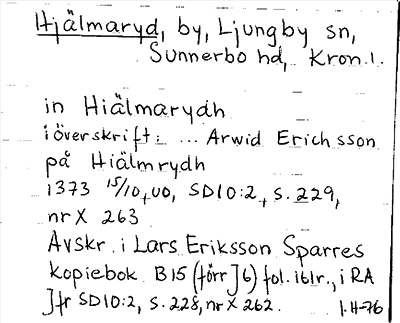 Hjälmaryd, by, Ljungby sn,
Sunnerbo hd, Kron.l.
in Hiälmarydh
i överskrift: ... Arwid Erichsson
på Hiälmrydh
1373 15/10, uo, SD10:2, s. 229,
nr X 263
Avskr. i Lars Eriksson Sparres
kopiebok B15 (förr J6) fol. 161r., i RA
Jfr SD10:2, s. 228, nr X 262. I.H-76